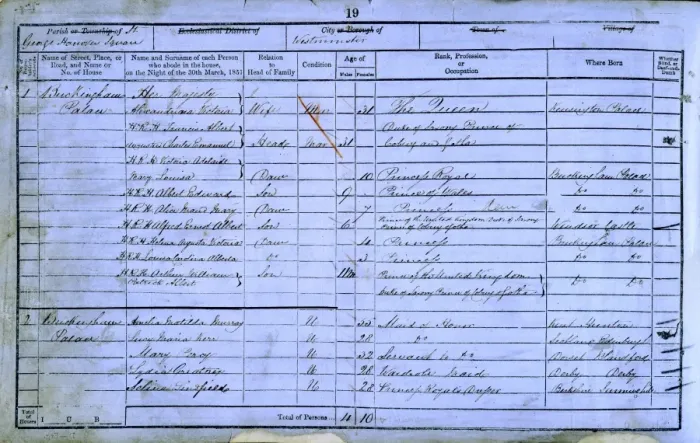 19
Parish or Township of St City or Borough of
George Hanover Square Ecclesiastical District of Westminster Town of Village of
Name of Street, Place, or Road, and Name or No. of House
Name and Surname of each Person who abode in the house, on the Night of the 30th March, 1851
Relation to Head of Family
Condition
Age of
Males Females
Rank, Profession, or Occupation
Where Born
Whether Blind, or Deaf-and-Dumb
1 Buckingham Her Majesty
Palace Alexandrina Victoria Wife Mar 31 The Queen Kensington Palace
H.R.H. Francis Albert Duke of Saxony Prince of
Charles Emanuel Head Mar 31 Coburg and Gotha
H.R.H. Victoria Adelaide
Mary Louisa Daur 10 Princess Royal Buckingham Palace
H.R.H. Albert Edward Son 9 Prince of Wales Do Do
H.R.H. Alice Maud Mary Daur 7 Princess Do Do
H.R.H. Alfred Ernest Albert Son 6 Prince of the United Kingdom Duke of Saxony Prince of Coburg Gotha Windsor Castle
H.R.H. Helena Augusta Victoria Daur 4 Princess Buckingham Palace
H.R.H. Louisa Carolina Alberta Do 3 Princess Do Do
H.R.H. Arthur William Son 11 Mo Prince of the United Kingdom Do Do
Patrick Albert Duke of Saxony Prince of Coburg & Gotha
2 Buckingham Amelia Matilda Murray U 55 Maid of Honor Kent
Palace Lucy Maria Kerr U 28 Do Scotland Edinburgh
Mary U 32 Servant to Do Dorset Blandford
Lydia U 28 Wardrobe Maid Derby Derby
Selina U 28 Princess Royals Dresser Berkshire Sunninghill
Total of Houses 1 I U B Total of Persons 4 10